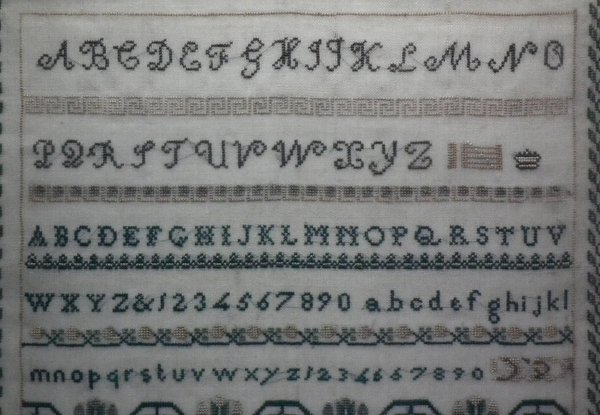 ABCDEFGHIJKLMNO
PQRSTUVWXYZ
ABCDEFGHIJKLMNOPQRSTUV
WXYZ&1234567890 abcdefghijkl
mnopqrstuvwxyz1234567890